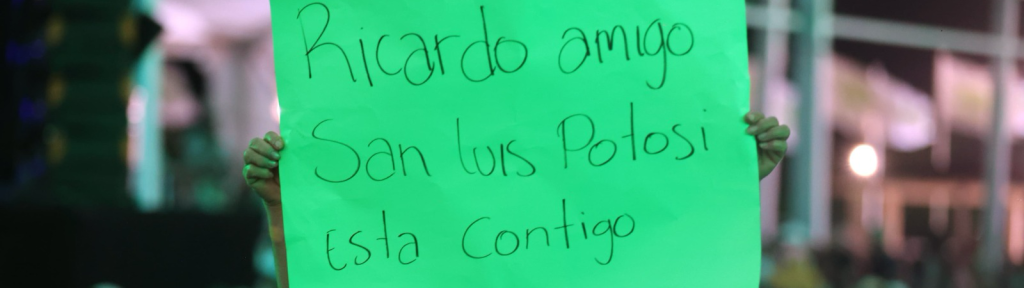 Ricardo amigo
San Luis Potosi
Esta Contigo